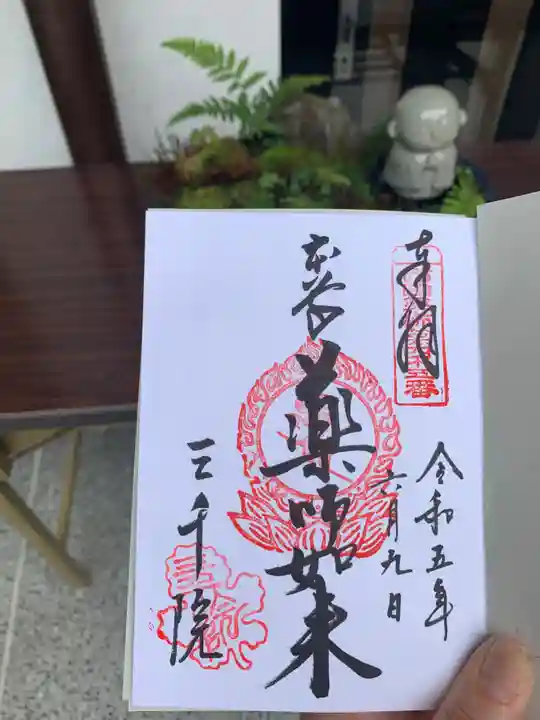 奉拝
令和五年
六月九日
本尊
薬師如来
三千院